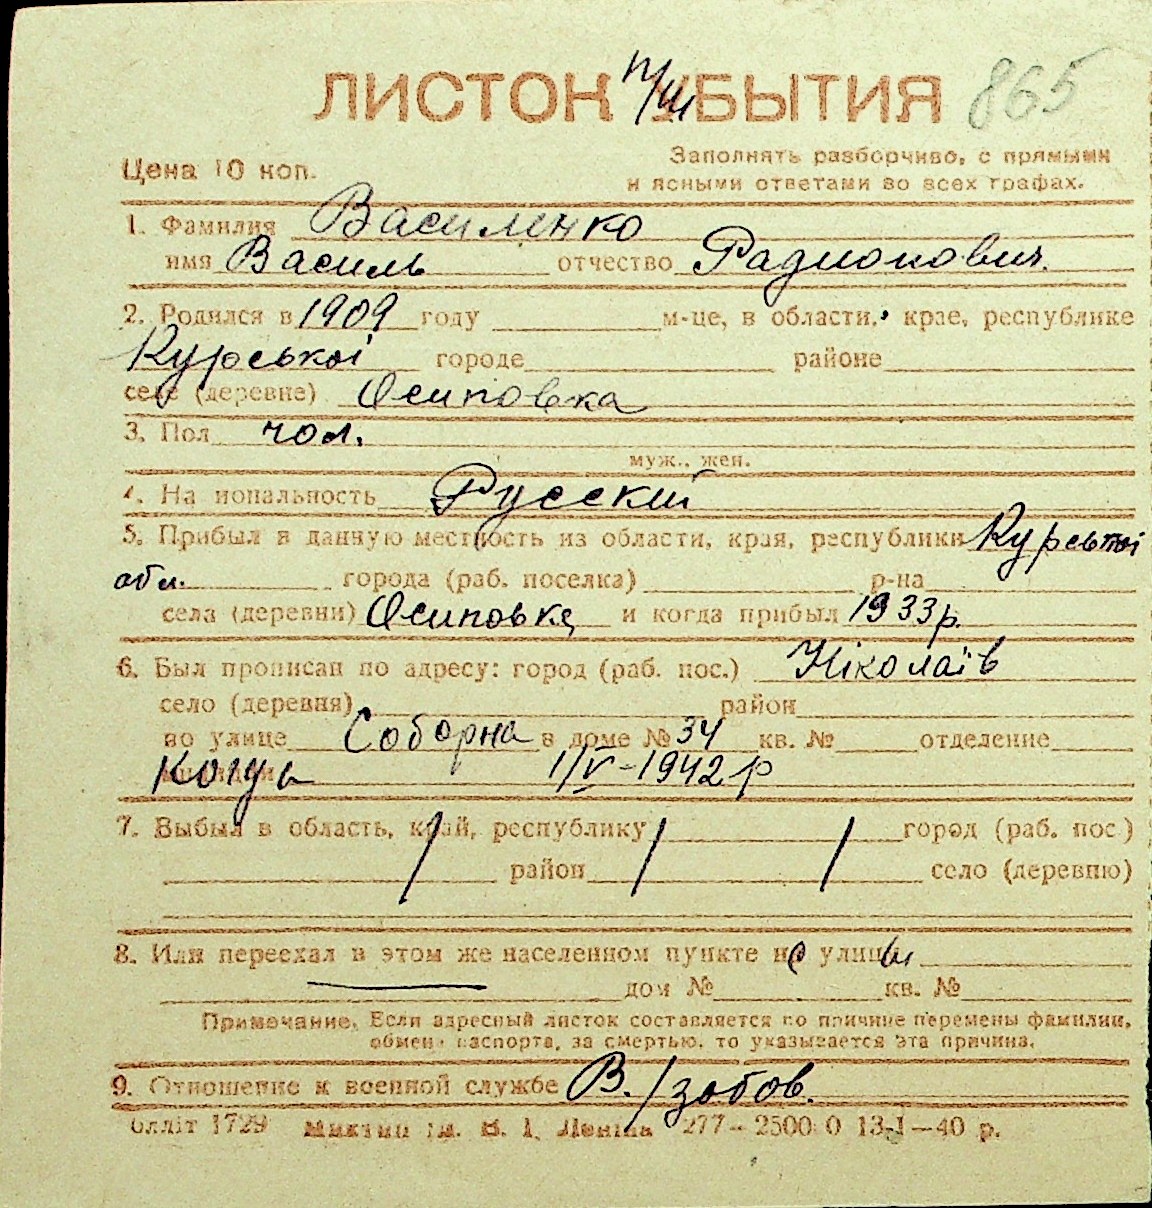 ЛИСТОК УБЫТИЯ 865
Цена 10 коп.
Заполнять разборчиво, с прямыми
и ясными ответами во всех графах.
1. Фамилия Василенко
имя Василь отчество Радионович.
2. Родился в 1909 году м-це, в области, крае, республике
Курської городе районе
селе (деревне) Осиповка
3. Пол чол.
муж., жен.
4. На иональность Русский
5. Прибыл в данную местность из области, края, республики Курської
обл. города (раб. поселка) р-на
села (деревни) Осиповка и когда прибыл 1933 р.
6. Был прописан по адресу: город (раб. пос.) Ніколаїв
село (деревня) район
по улице Соборна в доме № 34 кв. № отделение
1/V-1942 р
7. Выбыл в область, край, республику город (раб. пос.)
район село (деревню)
8. Или переехал в этом же населенном пункте на улицы
дом № кв. №
Примечание. Если адресный листок составляется по причине перемены фамилии,
обмен паспорта, за смертью, то указывается эта причина.
9. Отношение к военной службе В/зобов.
блліт 1729 Миктип ім. В. І. Леніна 277—2500 0 13-1—40 р.